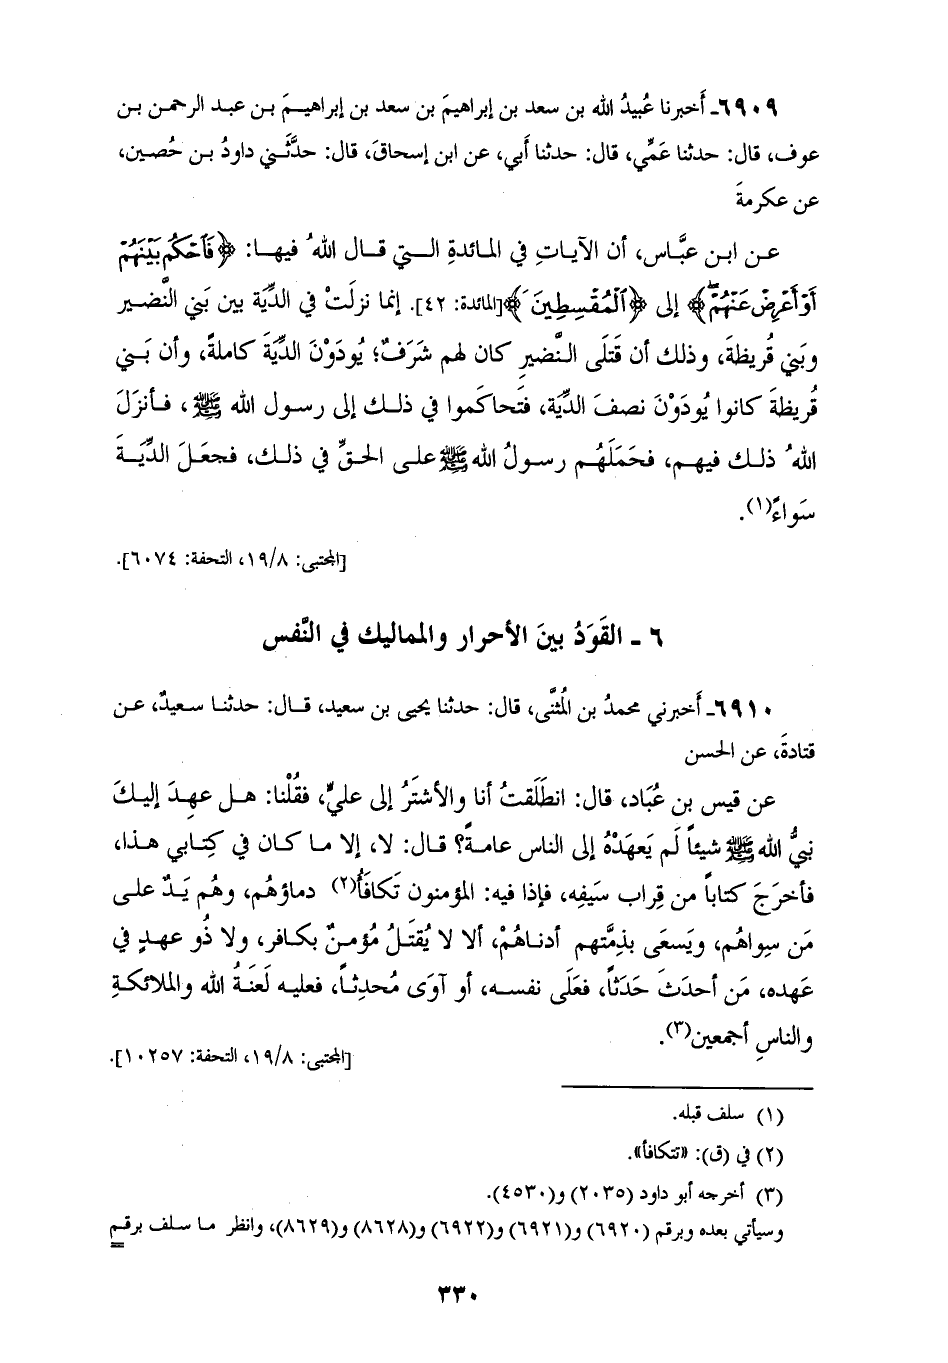 ٦٩٠٩ـ أَخبرنا عُبيدُ الله بن سعد بن إبراهيمَ بن سعد بن إبراهيـمَ بـن عبـد الرحمـن بـن
عوف، قال: حدثنا عَمِّي، قال: حدثنا أَبي، عن ابن إسحاقَ، قال: حدَّثَـني داودُ بـن حُصين،
عن عكرمةَ
عـن ابـن عبَّـاس، أن الآيـاتِ في المـائدةِ الـتي قـال اللهُ فيهـا: ﴿فَٱحْكُم بَيْنَهُمْ
أَوْ أَعْرِضْ عَنْهُمْ﴾ إلى ﴿ٱلْمُقْسِطِينَ﴾[المائدة: ٤٢]. إنما نزلَتْ في الدِّيَة بين بَني النَّضـير
وبَني قُريظةَ، وذلك أن قَتلَى النَّضيرِ كان لهم شَرَفٌ؛ يُودَوْنَ الدِّيَةَ كاملةً، وأن بَـني
قُريظةَ كانوا يُودَوْنَ نصفَ الدِّيَة، فتَحاكَموا في ذلـك إلى رسـول الله ﷺ، فـأنزَلَ
اللهُ ذلـك فيهـم، فحَمَلَهُـم رسـولُ الله ﷺ علـى الحـقِّ في ذلـك، فجعَـلَ الدِّيَـةَ
سَواءً(١).
[المجتبى: ١٩/٨، التحفة: ٦٠٧٤].
٦ ـ القَوَدُ بينَ الأحرار والمماليك في النَّفس
٦٩١٠ـ أَخبرني محمدُ بن المُثنَّى، قال: حدثنا يحيى بن سعيد، قـال: حدثنـا سـعيدٌ، عـن
قتادةَ، عن الحسن
عن قيس بن عُبَاد، قال: انطَلَقتُ أنا والأشتَرُ إلى عليٍّ، فقُلْنا: هـل عهِـدَ إليـكَ
نبيُّ الله ﷺ شيئاً لَم يَعهَدْهُ إلى الناس عامـةً؟ قـال: لا، إلا مـا كـان في كِتـابي هـذا،
فأخرَجَ كتاباً من قِراب سَيفِه، فإذا فيه: المؤمنون تَكافَأُ(٢) دماؤهُم، وهُم يَـدٌ علـى
مَن سِواهُم، ويَسعَى بذِمَّتهم أدناهُمْ، ألا لا يُقتَـلُ مُؤمـنٌ بكـافر، ولا ذُو عهـدٍ في
عَهده، مَن أحدَثَ حَدَثاً، فعَلَى نفسـه، أو آوَى مُحدِثـاً، فعليـه لَعنَـةُ الله والملائكـةِ
والناسِ أجمعين(٣).
[المجتبى: ١٩/٨، التحفة: ١٠٢٥٧].
(١) سلف قبله.
(٢) في (ق): «تتكافأ».
(٣) أخرجه أبو داود (٢٠٣٥) و(٤٥٣٠).
وسيأتي بعده وبرقم (٦٩٢٠) و(٦٩٢١) و(٦٩٢٢) و(٨٦٢٨) و(٨٦٢٩)، وانظر مـا سـلف برقـم
٣٣٠